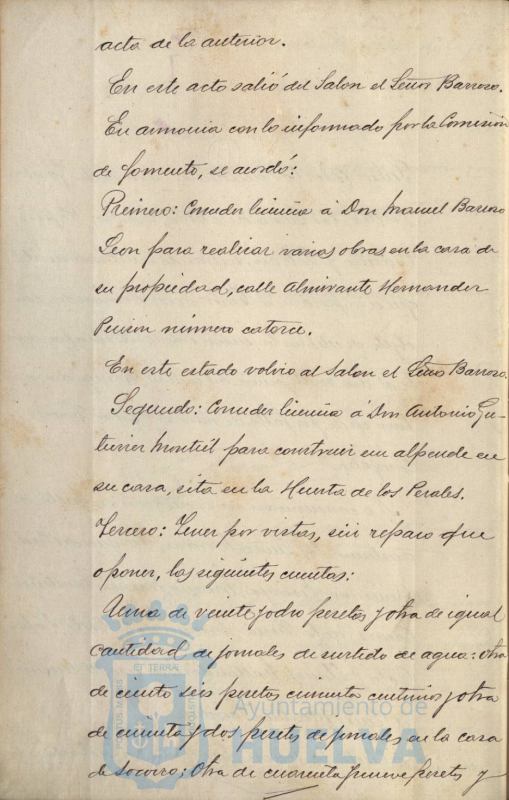 acta de la anterior.
En este acto salió del Salon el Señor Barroso.
En armonia con lo informado por la Comisión
de fomento, se acordó:
Primero: Conceder licencia á Don Manuel Barroso
Leon para realizar varias obras en la casa de
su propiedad, calle Almirante Hernandez
Pinzon número catorce.
En este estado volvio al Salon el Señor Barroso.
Segundo: Conceder licencia á Don Antonio Gu-
tierrez Montiel para construir un alpende en
su casa, sita en la Huerta de los Perales.
Tercero: Tener por vistas, sin reparo que
oponer, las siguientes cuentas:
Una de veinte y ocho pesetas y otra de igual
cantidad de jornales de surtido de agua: otra
de ciento seis pesetas cincuenta centimos y otra
de cincuenta y dos pesetas de jornales en la casa
de socorro; Otra de cuarenta y nueve pesetas y
PORTUS MARIS
ET TERRAE
CUSTODIA
Ayuntamiento de
HUELVA